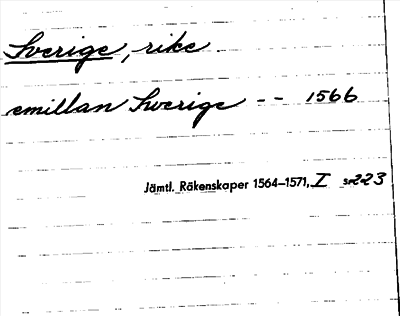 Sverige, rike
emillan Sverige -- 1566
Jämtl. Räkenskaper 1564–1571, I s. 223